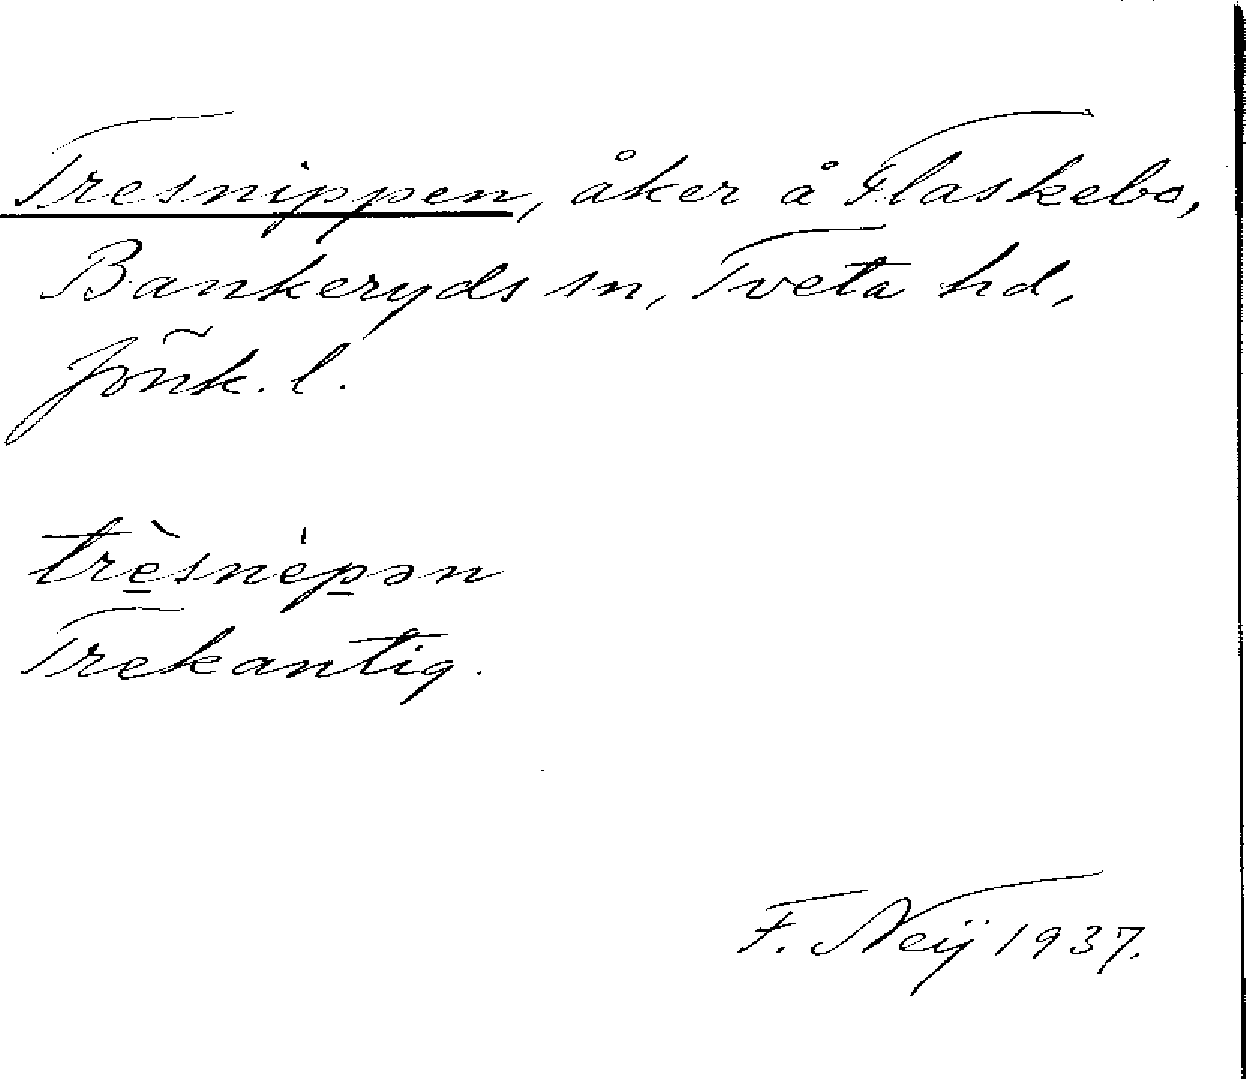 Tresnippen, åker å Flaskebo,
Bankeryds sn, Tveta hd,
Jönk. l.
trè̱snèp̱ən
Trekantig.
F. Neij 1937.